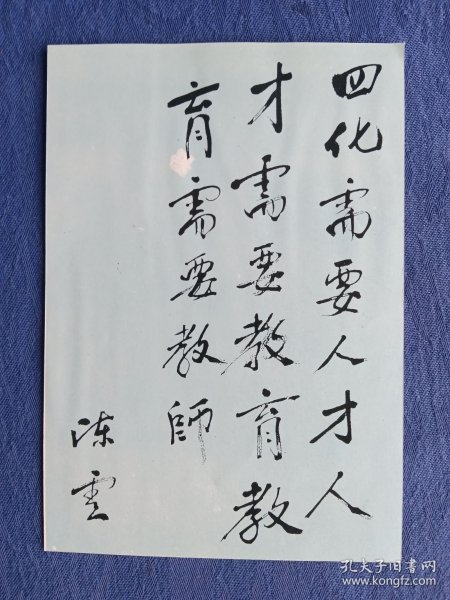 四化需要人才人
才需要教育教
育需要教師
陈雲
孔夫子旧书网
www.kongfz.com